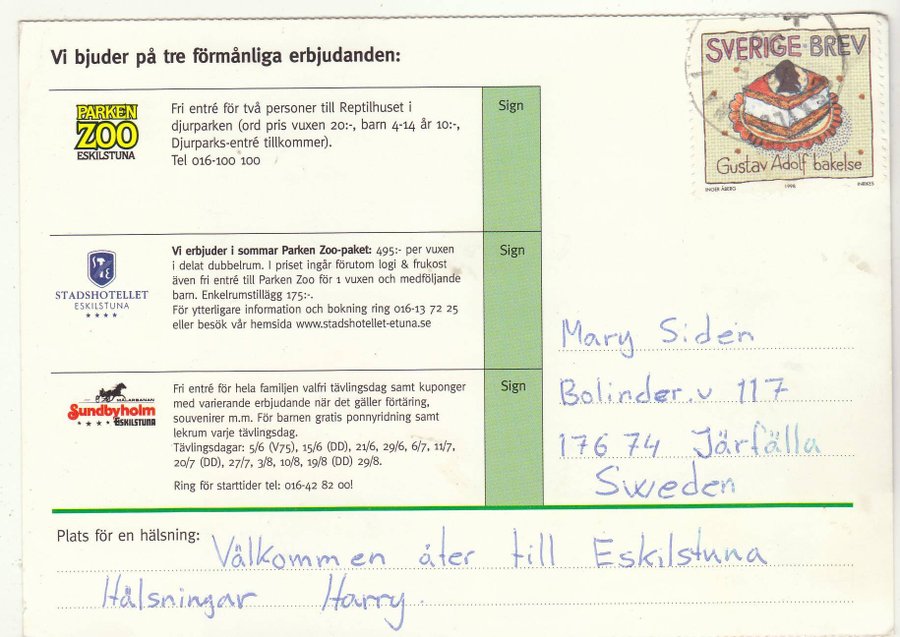 Vi bjuder på tre förmånliga erbjudanden:
SVERIGE BREV
Gustav Adolf bakelse
INGER ÅBERG 1998
PARKEN
ZOO
ESKILSTUNA
Fri entré för två personer till Reptilhuset i
djurparken (ord pris vuxen 20:-, barn 4-14 år 10:-,
Djurparks-entré tillkommer).
Tel 016-100 100
Sign
STADSHOTELLET
ESKILSTUNA
Vi erbjuder i sommar Parken Zoo-paket: 495:- per vuxen
i delat dubbelrum. I priset ingår förutom logi & frukost
även fri entré till Parken Zoo för 1 vuxen och medföljande
barn. Enkelrumstillägg 175:-.
För ytterligare information och bokning ring 016-13 72 25
eller besök vår hemsida www.stadshotellet-etuna.se
Sign
MÄLARBANAN
Sundbyholm
ESKILSTUNA
Fri entré för hela familjen valfri tävlingsdag samt kuponger
med varierande erbjudande när det gäller förtäring,
souvenirer m.m. För barnen gratis ponnyridning samt
lekrum varje tävlingsdag.
Tävlingsdagar: 5/6 (V75), 15/6 (DD), 21/6, 29/6, 6/7, 11/7,
20/7 (DD), 27/7, 3/8, 10/8, 19/8 (DD) 29/8.
Ring för starttider tel: 016-42 82 00!
Sign
Mary Siden
Bolinder.v 117
176 74 Järfälla
Sweden
Plats för en hälsning: Välkommen åter till Eskilstuna
Hälsningar Harry.